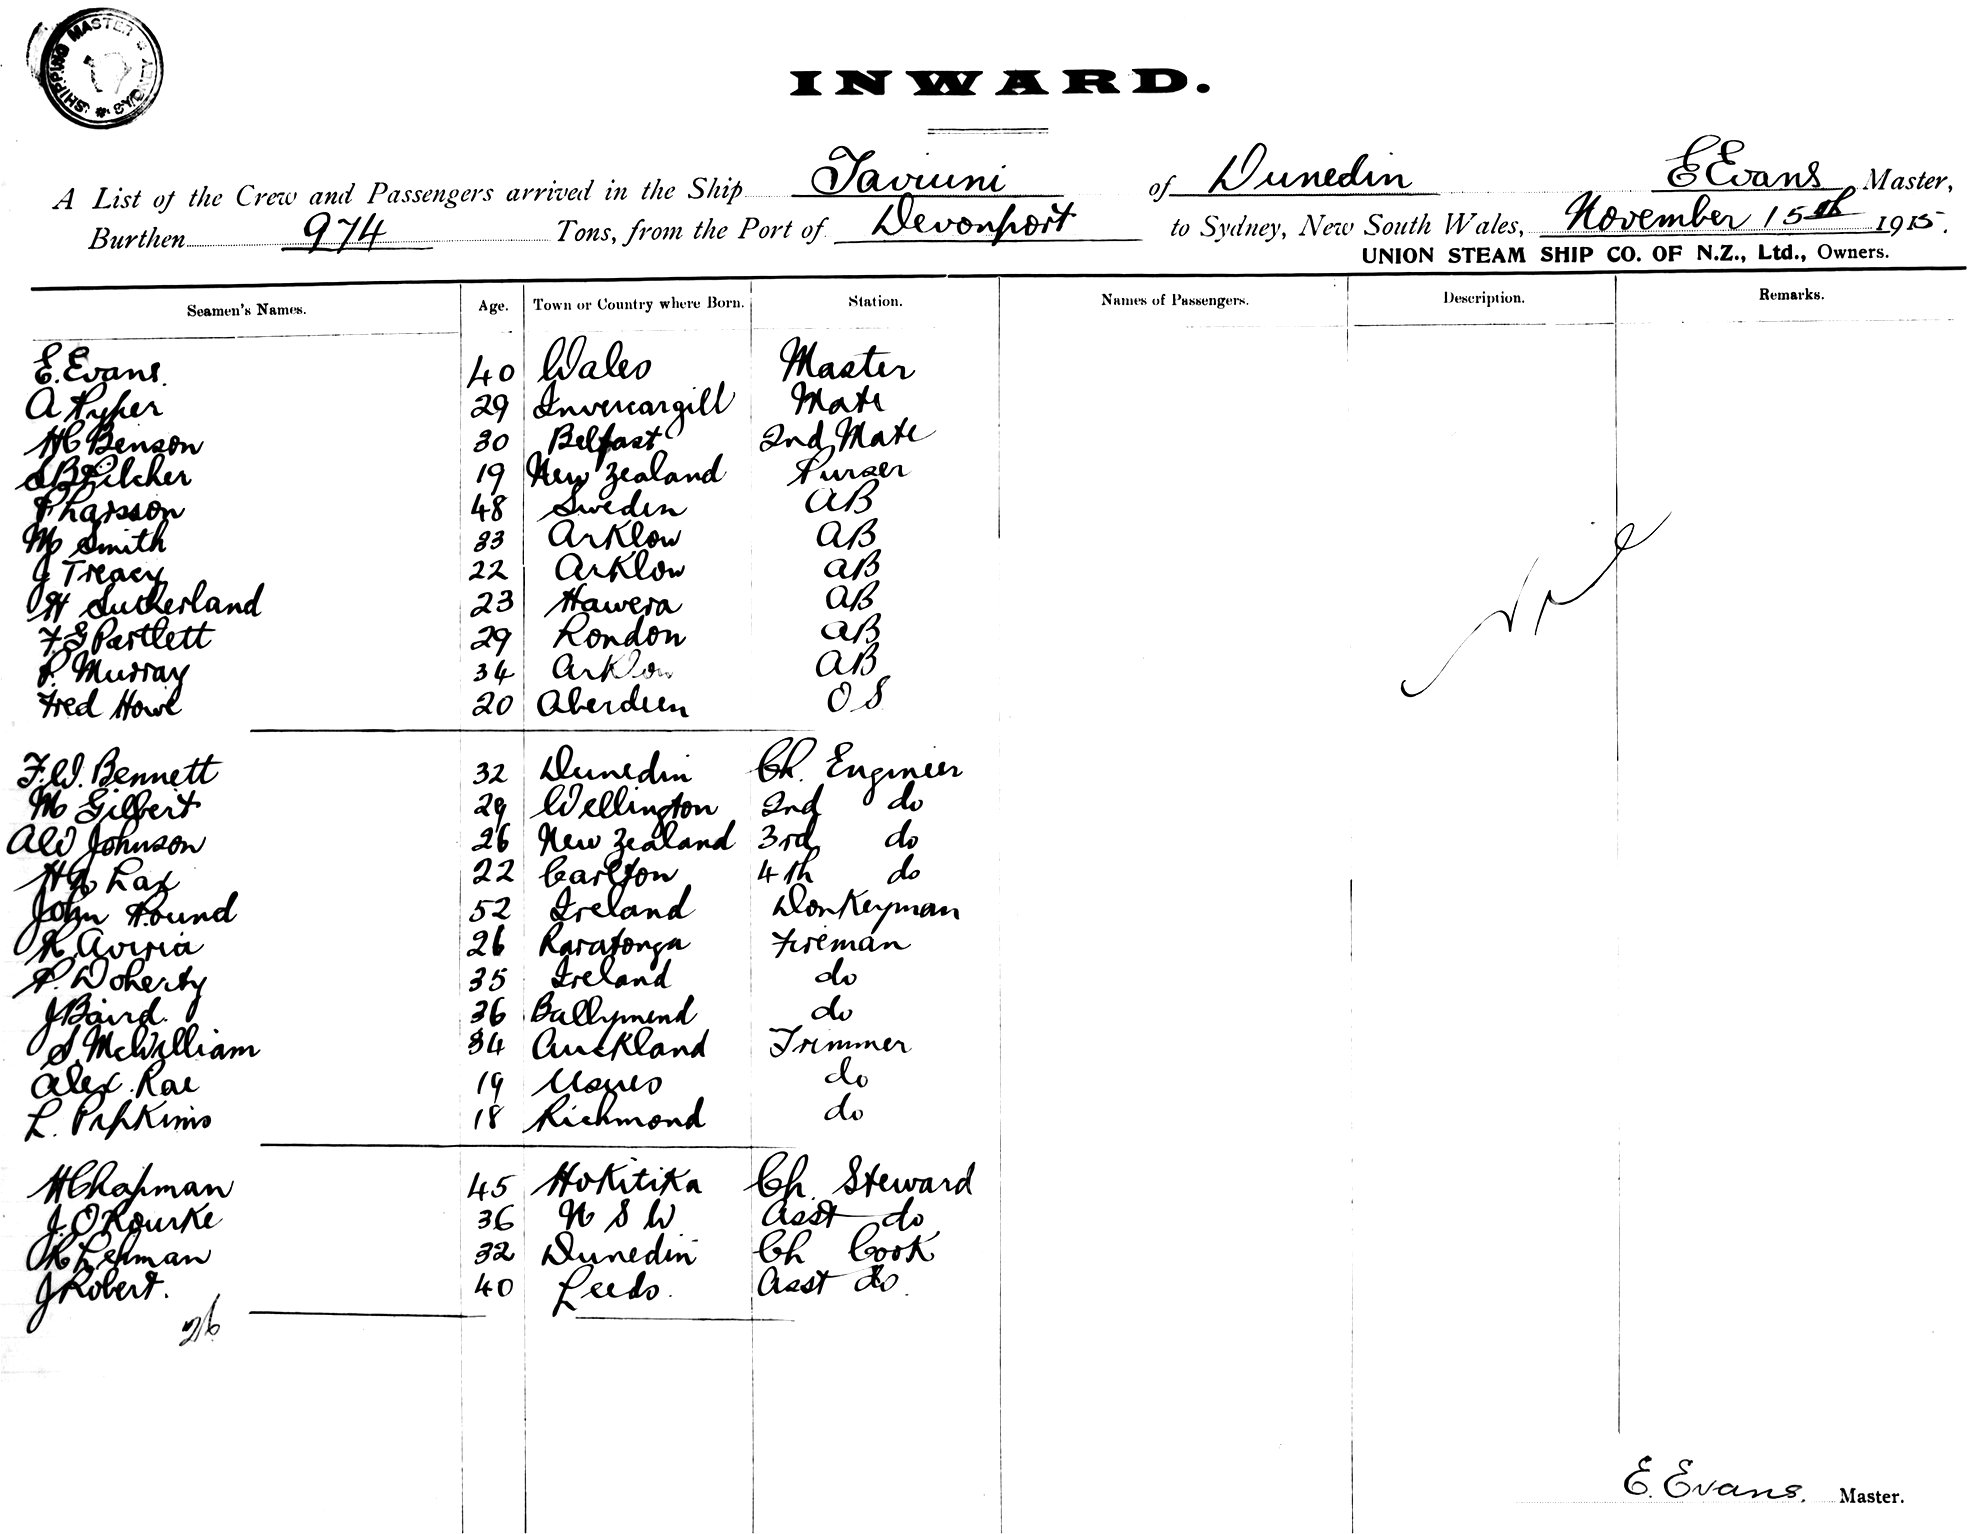 SHIPPING MASTER SYDNEY
INWARD.
A List of the Crew and Passengers arrived in the Ship Taviuni of Dunedin E Evans Master,
Burthen 974 Tons, from the Port of Devonport to Sydney, New South Wales, November 15th 1915.
UNION STEAM SHIP CO. OF N.Z., Ltd., Owners.
Seamen's Names. Age. Town or Country where Born. Station. Names of Passengers. Description. Remarks.
E. Evans. 40 Wales Master
A Pyper 29 Invercargill Mate
HC Benson 30 Belfast 2nd Mate
SB Pilcher 19 New Zealand Purser
P Larsson 48 Sweden AB
M Smith 33 Arklow AB
J Treacy 22 Arklow AB
H Sutherland 23 Hawera AB
F.G Partlett 29 London AB
P. Murray 34 Arklow AB
Fred Howe 20 Aberdeen O S
Nil
F.W. Bennett 32 Dunedin Ch. Engineer
M Gilbert 29 Wellington 2nd do
AW Johnson 26 New Zealand 3rd do
Lax 22 Carlton 4th do
John Hound 52 Ireland Donkeyman
K. Aviria 26 Raratonga Fireman
P. Doherty 35 Ireland do
J Baird. 36 Ballymend do
S. McWilliam 34 Auckland Trimmer
Alex. Rae 19 do
L. Pipkins 18 Richmond do
H Chapman 45 Hokitika Ch. Steward
J. O'Rourke 36 N S W Asst do
R Lehman 32 Dunedin Ch Cook
J Robert. 40 Leeds. Asst do.
26
E. Evans. Master.